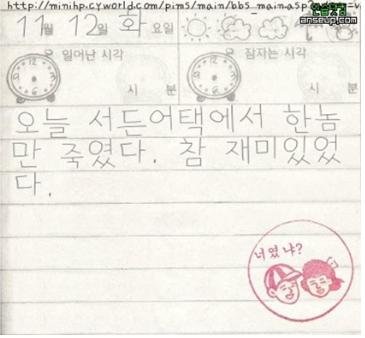 http://minihp.cyworld.com/pims/main/bbs_main.asp
anseup.com
11월 12일 화요일
일어난 시각 잠자는 시각
시 분 시 분
오늘 서든어택에서 한놈
만 죽였다. 참 재미있었
다.
너였냐?